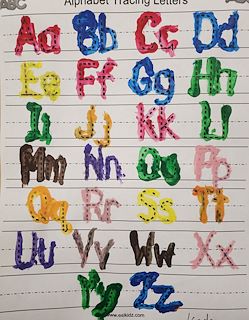 ABC Alphabet Tracing Letters
Aa Bb Cc Dd
Ee Ff Gg Hh
Ii Jj Kk Ll
Mm Nn Oo Pp
Qq Rr Ss Tt
Uu Vv Ww Xx
Yy Zz